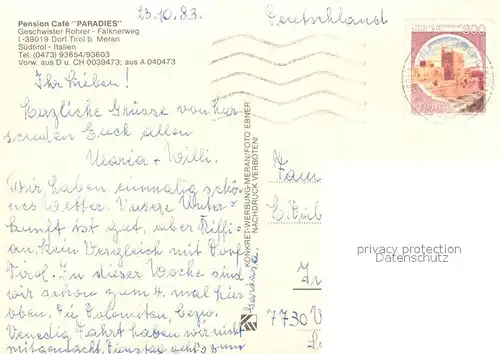 23.10.83.
Deutschland
Pension Café "PARADIES"
Geschwister Rohrer - Falknerweg
I-39019 Dorf Tirol b. Meran
Südtirol - Italien
Tel. (0473) 93654/93603
Vorw. aus D u. CH 0039473; aus A 040473
300
ITALIA
Ihr Lieben!
Herzliche Grüsse von hier
senden Euch allen
Maria + Willi.
Wir haben einmalig schö-
nes Wetter. Unsere Unter-
kunft ist gut, aber Riffi-
an. Kein Vergleich mit Dorf
Tirol. In dieser Woche sind
wir schon zum 4. mal hier
oben. Die Dolomiten, bezw.
Venedig Fahrt haben wir nicht
mitgemacht. Dienstag
KONKRET-WERBUNG-MERAN/FOTO EBNER
NACHDRUCK VERBOTEN!
Fam
7730 V
privacy protection
Datenschutz